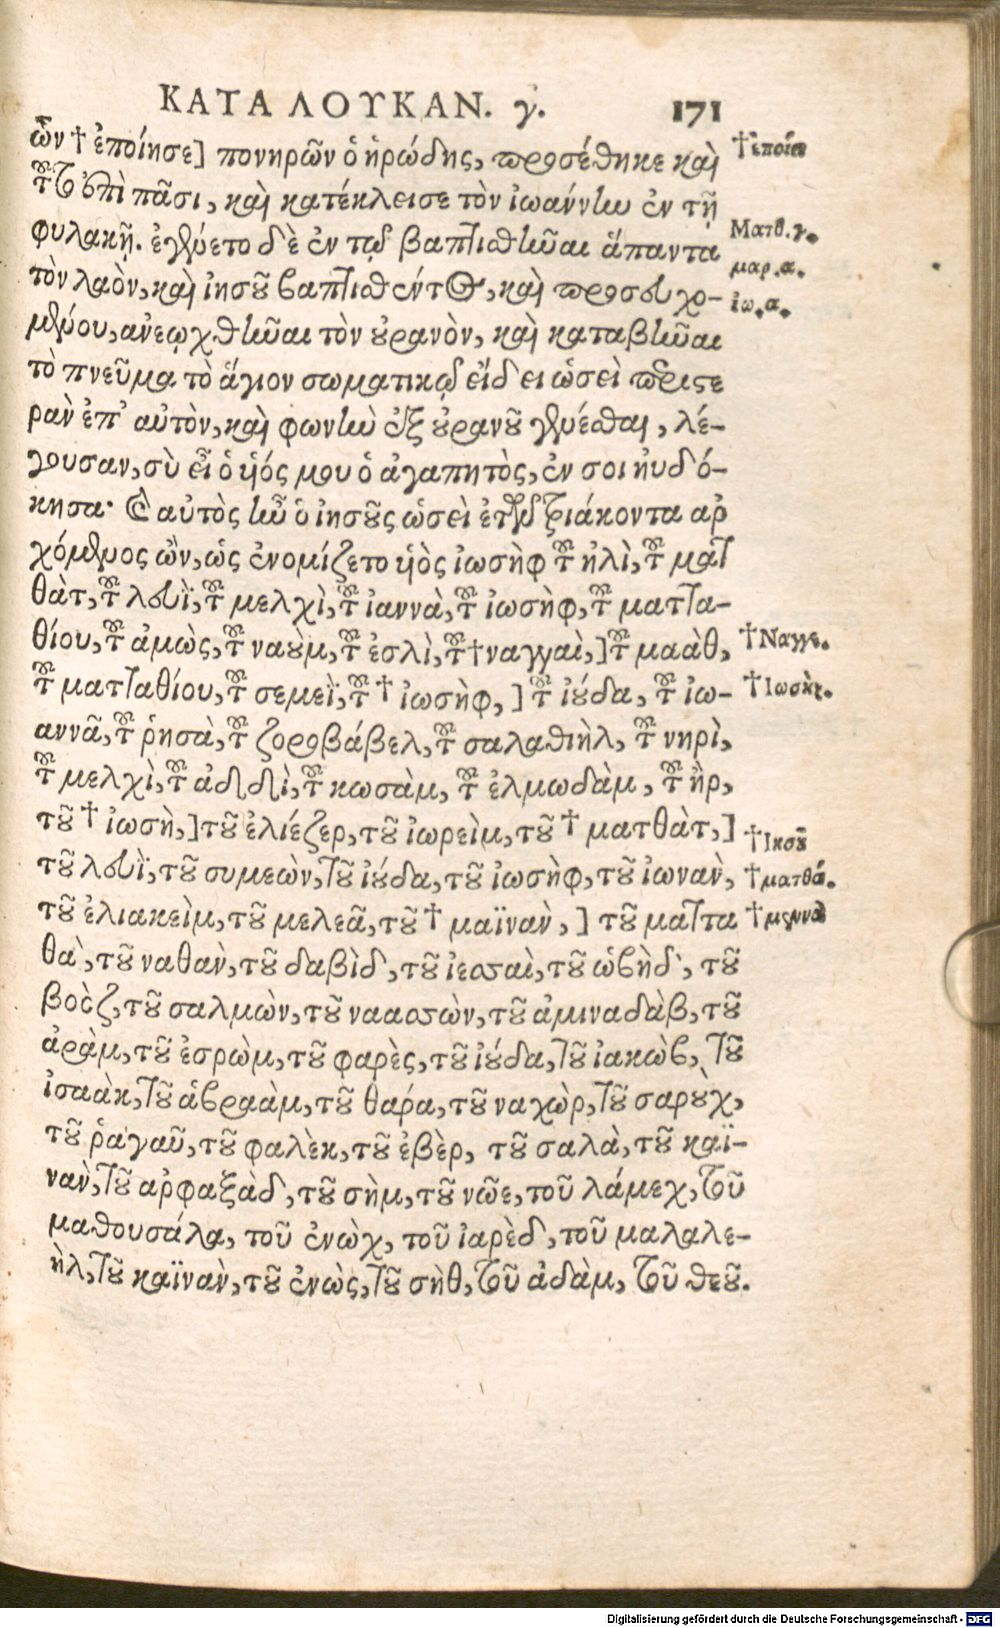 ΚΑΤΑ ΛΟΥΚΑΝ. γ. 171
ὧν † ἐποίησε] πονηρῶν ὁ ἡρώδης, προσέθηκε καὶ
τοῦτο ἐπὶ πᾶσι, καὶ κατέκλεισε τὸν ἰωάννην ἐν τῇ
φυλακῇ. ἐγένετο δὲ ἐν τῷ βαπτισθῆναι ἅπαντα
τὸν λαὸν, καὶ ἰησοῦ βαπτισθέντος, καὶ προσευχο-
μένου, ἀνεῳχθῆναι τὸν οὐρανὸν, καὶ καταβῆναι
τὸ πνεῦμα τὸ ἅγιον σωματικῷ εἴδει ὡσεὶ περιστε
ρὰν ἐπ᾽ αὐτὸν, καὶ φωνὴν ἐξ οὐρανοῦ γενέσθαι, λέ-
γουσαν, σὺ εἶ ὁ υἱός μου ὁ ἀγαπητὸς, ἐν σοι ηὐδό-
κησα· Καὶ αὐτὸς ἦν ὁ ἰησοῦς ὡσεὶ ἐτῶν τριάκοντα αρ
χόμενος ὢν, ὡς ἐνομίζετο υἱὸς ἰωσὴφ τοῦ ἠλὶ, τοῦ ματ
θὰτ, τοῦ λευῒ, τοῦ μελχὶ, τοῦ ἰαννὰ, τοῦ ἰωσὴφ, τοῦ ματτα-
θίου, τοῦ ἀμὼς, τοῦ ναοὺμ, τοῦ ἐσλὶ, τοῦ † ναγγαὶ,] τοῦ μαὰθ,
τοῦ ματταθίου, τοῦ σεμεῒ, τοῦ † ἰωσὴφ,] τοῦ ἰούδα, τοῦ ἰω-
αννᾶ, τοῦ ῥησὰ, τοῦ ζοροβάβελ, τοῦ σαλαθιὴλ, τοῦ νηρὶ,
τοῦ μελχὶ, τοῦ ἀδδὶ, τοῦ κωσὰμ, τοῦ ἐλμωδὰμ, τοῦ ἢρ,
τοῦ † ἰωσὴ,] τοῦ ἐλιέζερ, τοῦ ἰωρεὶμ, τοῦ † ματθὰτ,]
τοῦ λευῒ, τοῦ συμεὼν, τοῦ ἰούδα, τοῦ ἰωσὴφ, τοῦ ἰωνὰν,
τοῦ ἐλιακεὶμ, τοῦ μελεᾶ, τοῦ † μαϊνὰν,] τοῦ ματτα
θὰ, τοῦ ναθὰν, τοῦ δαβὶδ, τοῦ ἰεσσαὶ, τοῦ ὠβὴδ, τοῦ
βοὸζ, τοῦ σαλμὼν, τοῦ ναασσὼν, τοῦ ἀμιναδὰβ, τοῦ
ἀρὰμ, τοῦ ἐσρὼμ, τοῦ φαρὲς, τοῦ ἰούδα, τοῦ ἰακὼβ, τοῦ
ἰσαὰκ, τοῦ ἀβραὰμ, τοῦ θάρα, τοῦ ναχὼρ, τοῦ σαροὺχ,
τοῦ ῥαγαῦ, τοῦ φαλὲκ, τοῦ ἐβὲρ, τοῦ σαλὰ, τοῦ καϊ-
νὰν, τοῦ αρφαξὰδ, τοῦ σὴμ, τοῦ νῶε, τοῦ λάμεχ, τοῦ
μαθουσάλα, τοῦ ἐνὼχ, τοῦ ἰαρὲδ, τοῦ μαλαλε-
ὴλ, τοῦ καϊνὰν, τοῦ ἐνὼς, τοῦ σὴθ, τοῦ ἀδὰμ, τοῦ θεοῦ.
† ἐποίει
Ματθ. γ.
μαρ. α.
ἰω. α.
† Ναγγε.
† Ιωσὴχ.
† Ιησοῦ
† ματθά.
† μεννὰ
Digitalisierung gefördert durch die Deutsche Forschungsgemeinschaft - DFG